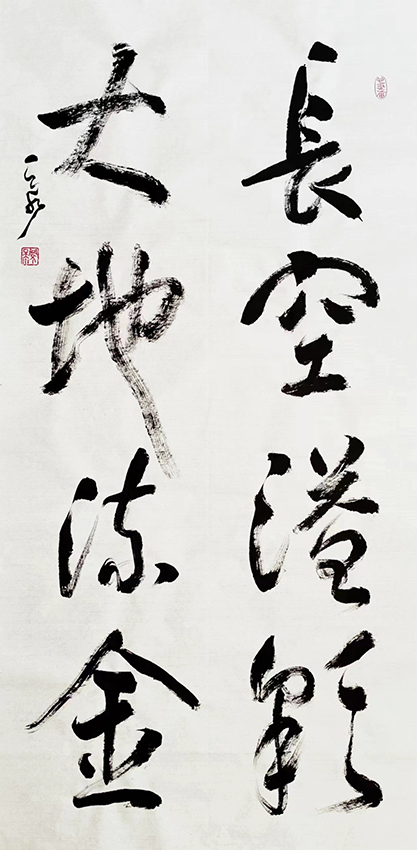 長空溢彩
大地流金